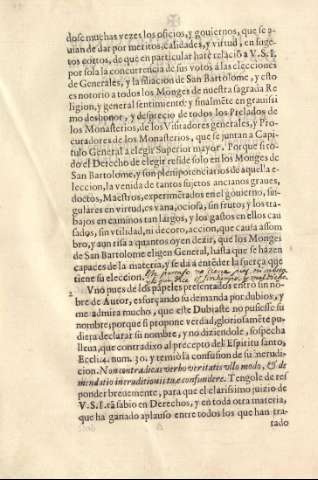 dose muchas vezes los oficios, y gouiernos, que se a-
uian de dar por meritos, calidades, y virtud, en suge-
tos cortos, de que en particular haré relaciõ a V. S. I.
por sola la concurrencia de sus votos à las elecciones
de Generales, y la filiacion de San Bartolome, y esto
es notorio a todos los Monges de nuestra sagrada Re
ligion, y general sentimiento: y finalmẽte en grauissi
mo desbonor, y desprecio de todos los Prelados de
los Monasterios, de los Visitadores generales, y Pro-
curadores de los Monasterios, que se juntan a Capi-
tulo General a elegir Superior mayor. Porque si to-
do el Derecho de elegir reside solo en los Monges de
San Bartolome, y son plenipotenciarios de aquella e-
leccion, la venida de tantos sujetos ancianos graues,
doctos, Maestros, experimẽtados en el gouierno, sin-
gulares en virtud, es vana, ociosa, sin fruto; y los tra-
bajos en caminos tan largos, y los gastos en ellos cau
sados, sin vtilidad, ni decoro, accion, que causa assom
bro, y aun risa a quantos oyen dezir, que los Monges
de San Bartolome eligen General, hasta que se hazen
capaces de la materia, y se dà a entẽder la fuerça que
tiene su eleccion.
Vno pues de los papeles presentados entrò sin nom-
bre de Autor, esforçando su demanda por dubios, y
me admira mucho, que este Dubiaste no pusiesse su
nombre, porque si propone verdad, gloriosamẽte pu-
diera declarar su nombre, y no diziendole, sospecha
lleua, que contradixo al precepto del Espiritu santo,
Eccli. 4. num. 30. y temiò la confusion de su inerudi-
cion. Non contradicas verbo veritatis vllo modo, & de
mendatio ineruditionis tuæ confundere. Tengole de res
ponder breuemente, para que el clarissimo juizio de
V. S. I. tã sabio en Derechos, y en toda otra materia,
que ha ganado aplauso entre todos los que han tra-
tado